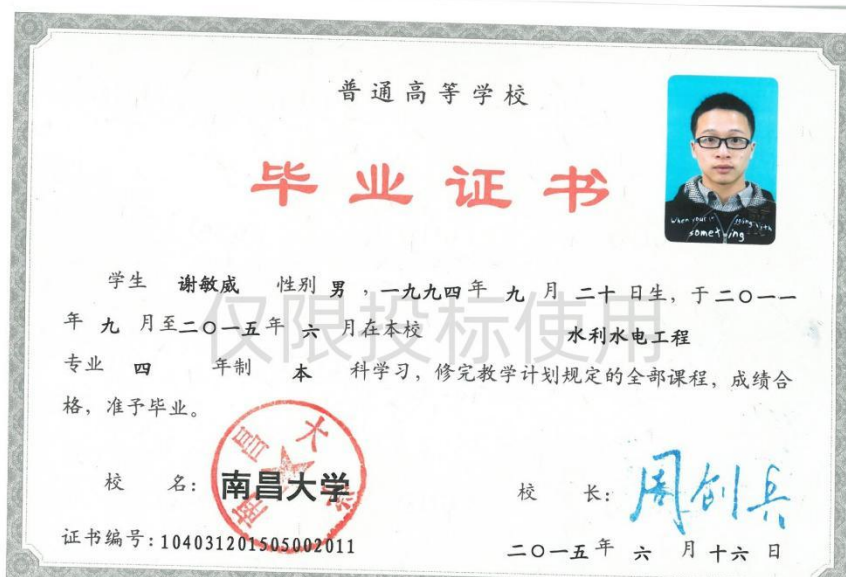 普通高等学校
毕业证书
when your in
going with
something
学生 谢敏威 性别 男 ，一九九四年 九 月 二十 日生，于二〇一一
年 九 月至二〇一五年 六 月在本校 水利水电工程
专业 四 年制 本 科学习，修完教学计划规定的全部课程，成绩合
格，准予毕业。
仅限投标使用
南昌大学
校 名：南昌大学
校 长：周创兵
证书编号：104031201505002011
二〇一五年 六 月十六日